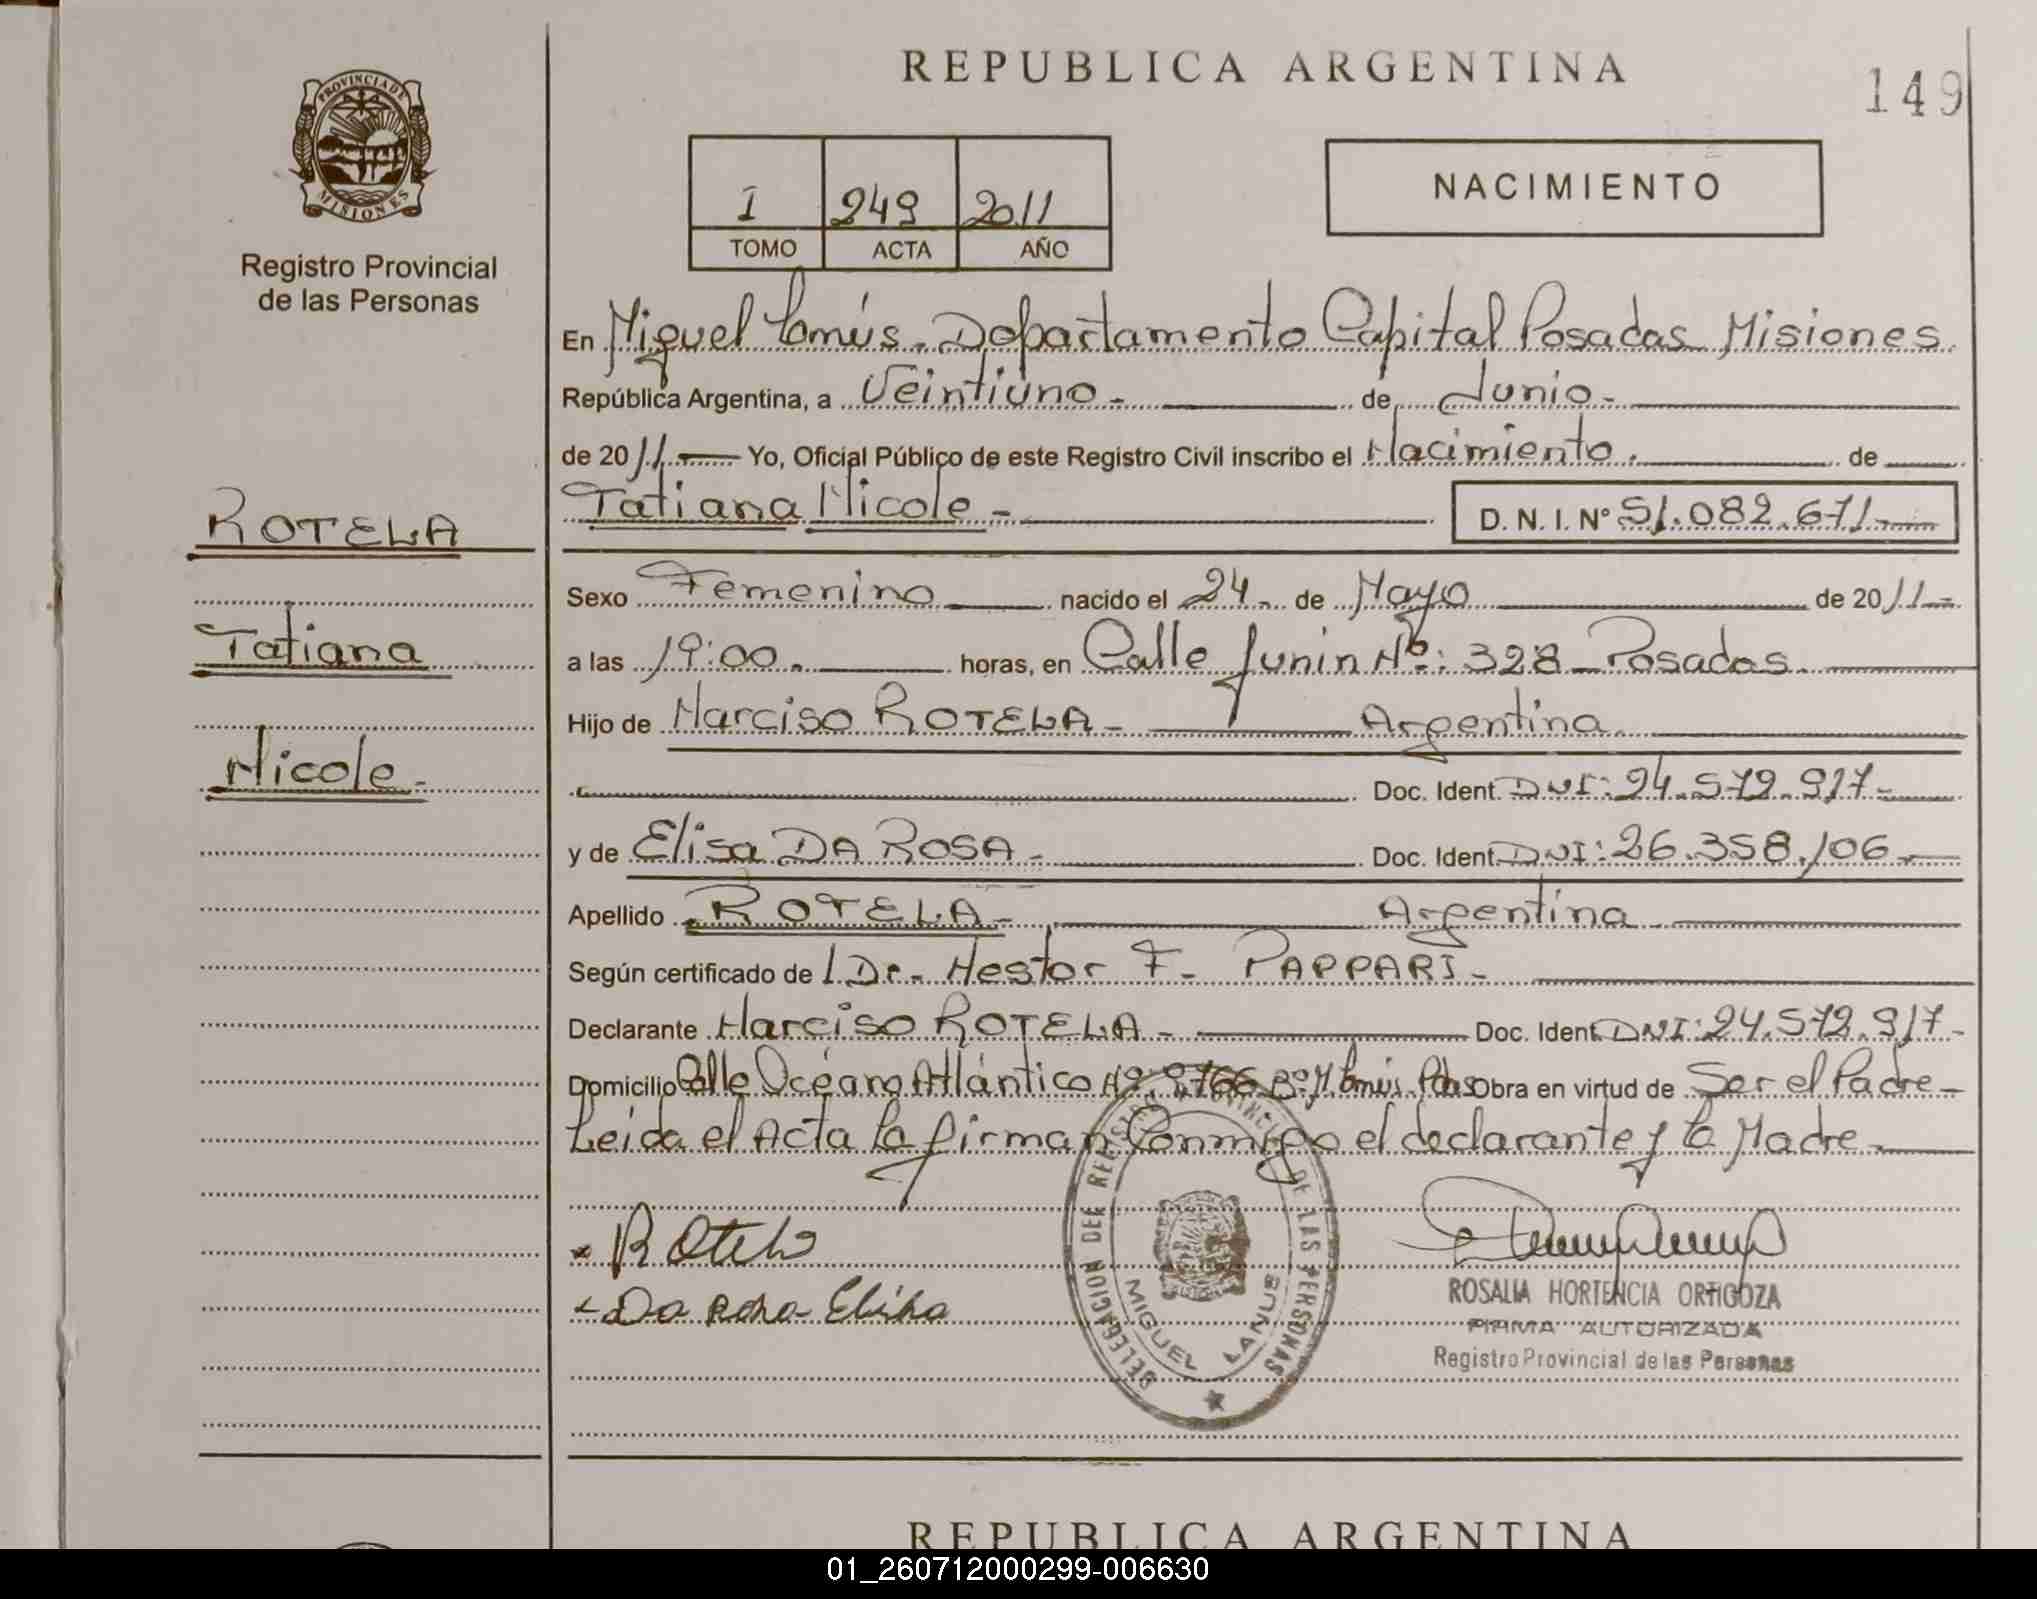 REPUBLICA ARGENTINA
149
PROVINCIA DE
MISIONES
Registro Provincial
de las Personas
I 249 2011
TOMO ACTA AÑO
NACIMIENTO
En Miguel Lanús. Departamento Capital Posadas Misiones
República Argentina, a Veintiuno - de Junio -
de 2011 Yo, Oficial Público de este Registro Civil inscribo el Nacimiento. de
Tatiana Nicole - D. N. I. N° 51.082.671 -
ROTELA
Tatiana
Nicole -
Sexo Femenino nacido el 24 - de Mayo de 2011 -
a las 19:00. horas, en Calle Junín Nº: 328 - Posadas
Hijo de Narciso ROTELA - Argentina
Doc. Ident. DNI: 24.572.917 -
y de Elisa DA ROSA - Doc. Ident. DNI: 26.358.106 -
Apellido ROTELA - Argentina
Según certificado de l Dr. Hestor F. PAPPARI -
Declarante Narciso ROTELA - Doc. Ident. DNI: 24.572.917 -
Domicilio Calle Océano Atlántico Nº: Bº M. Lanús Pdas Obra en virtud de Ser el Padre -
Leida el Acta la firman Conmigo el declarante y la Madre -
Rotela
Da Rosa Elisa
DELEGACION DEL REGISTRO PROVINCIAL DE LAS PERSONAS
MIGUEL LANUS
ROSALIA HORTENCIA ORTIGOZA
FIRMA AUTORIZADA
Registro Provincial de las Personas
REPUBLICA ARGENTINA
01_260712000299-006630